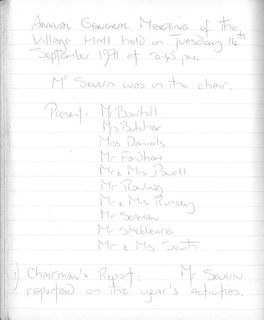 Annual General Meeting of the
Village Hall held on Tuesday 14th
September 1971 at 8.45 pm.
Mr Severn was in the chair.
Present:- Mr Bonthill
Mrs Butcher
Miss Daniels
Mr Fordham
Mr & Mrs Powell
Mr Rowling
Mr & Mrs Rumsey
Mr Seaman
Mr Stebbens
Mr & Mrs South
1) Chairman's Report. Mr Severn
reported on the year's activities.